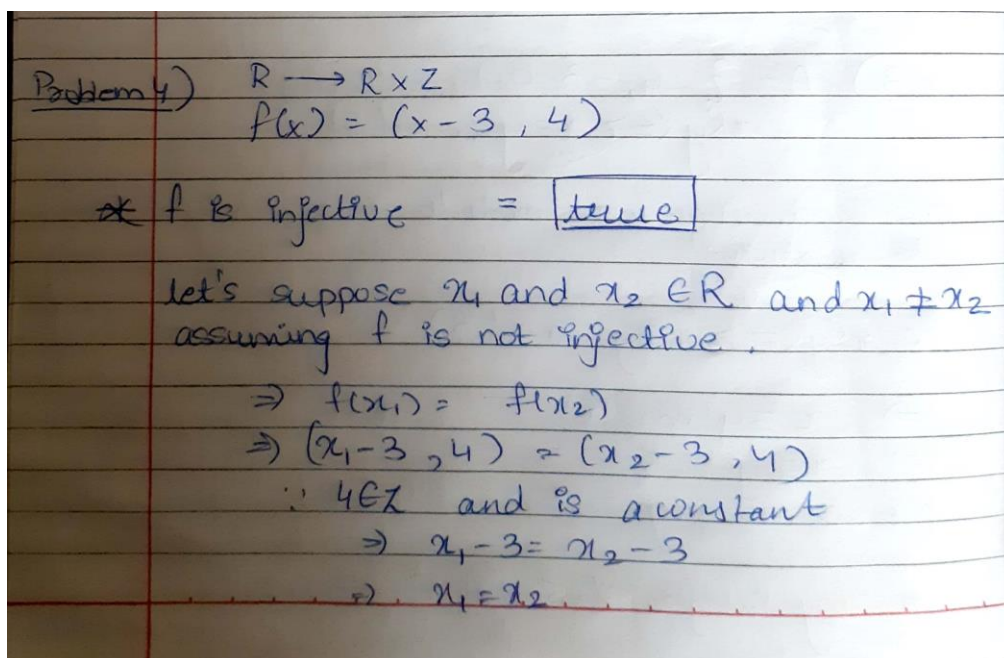 Problem 4) R → R x Z
f(x) = (x - 3 , 4)
* f is injective = true
let's suppose x₁ and x₂ ∈ R and x₁ ≠ x₂
assuming f is not injective.
⇒ f(x₁) = f(x₂)
⇒ (x₁-3 , 4) = (x₂-3 , 4)
∵ 4∈Z and is a constant
⇒ x₁-3 = x₂-3
⇒ x₁ = x₂